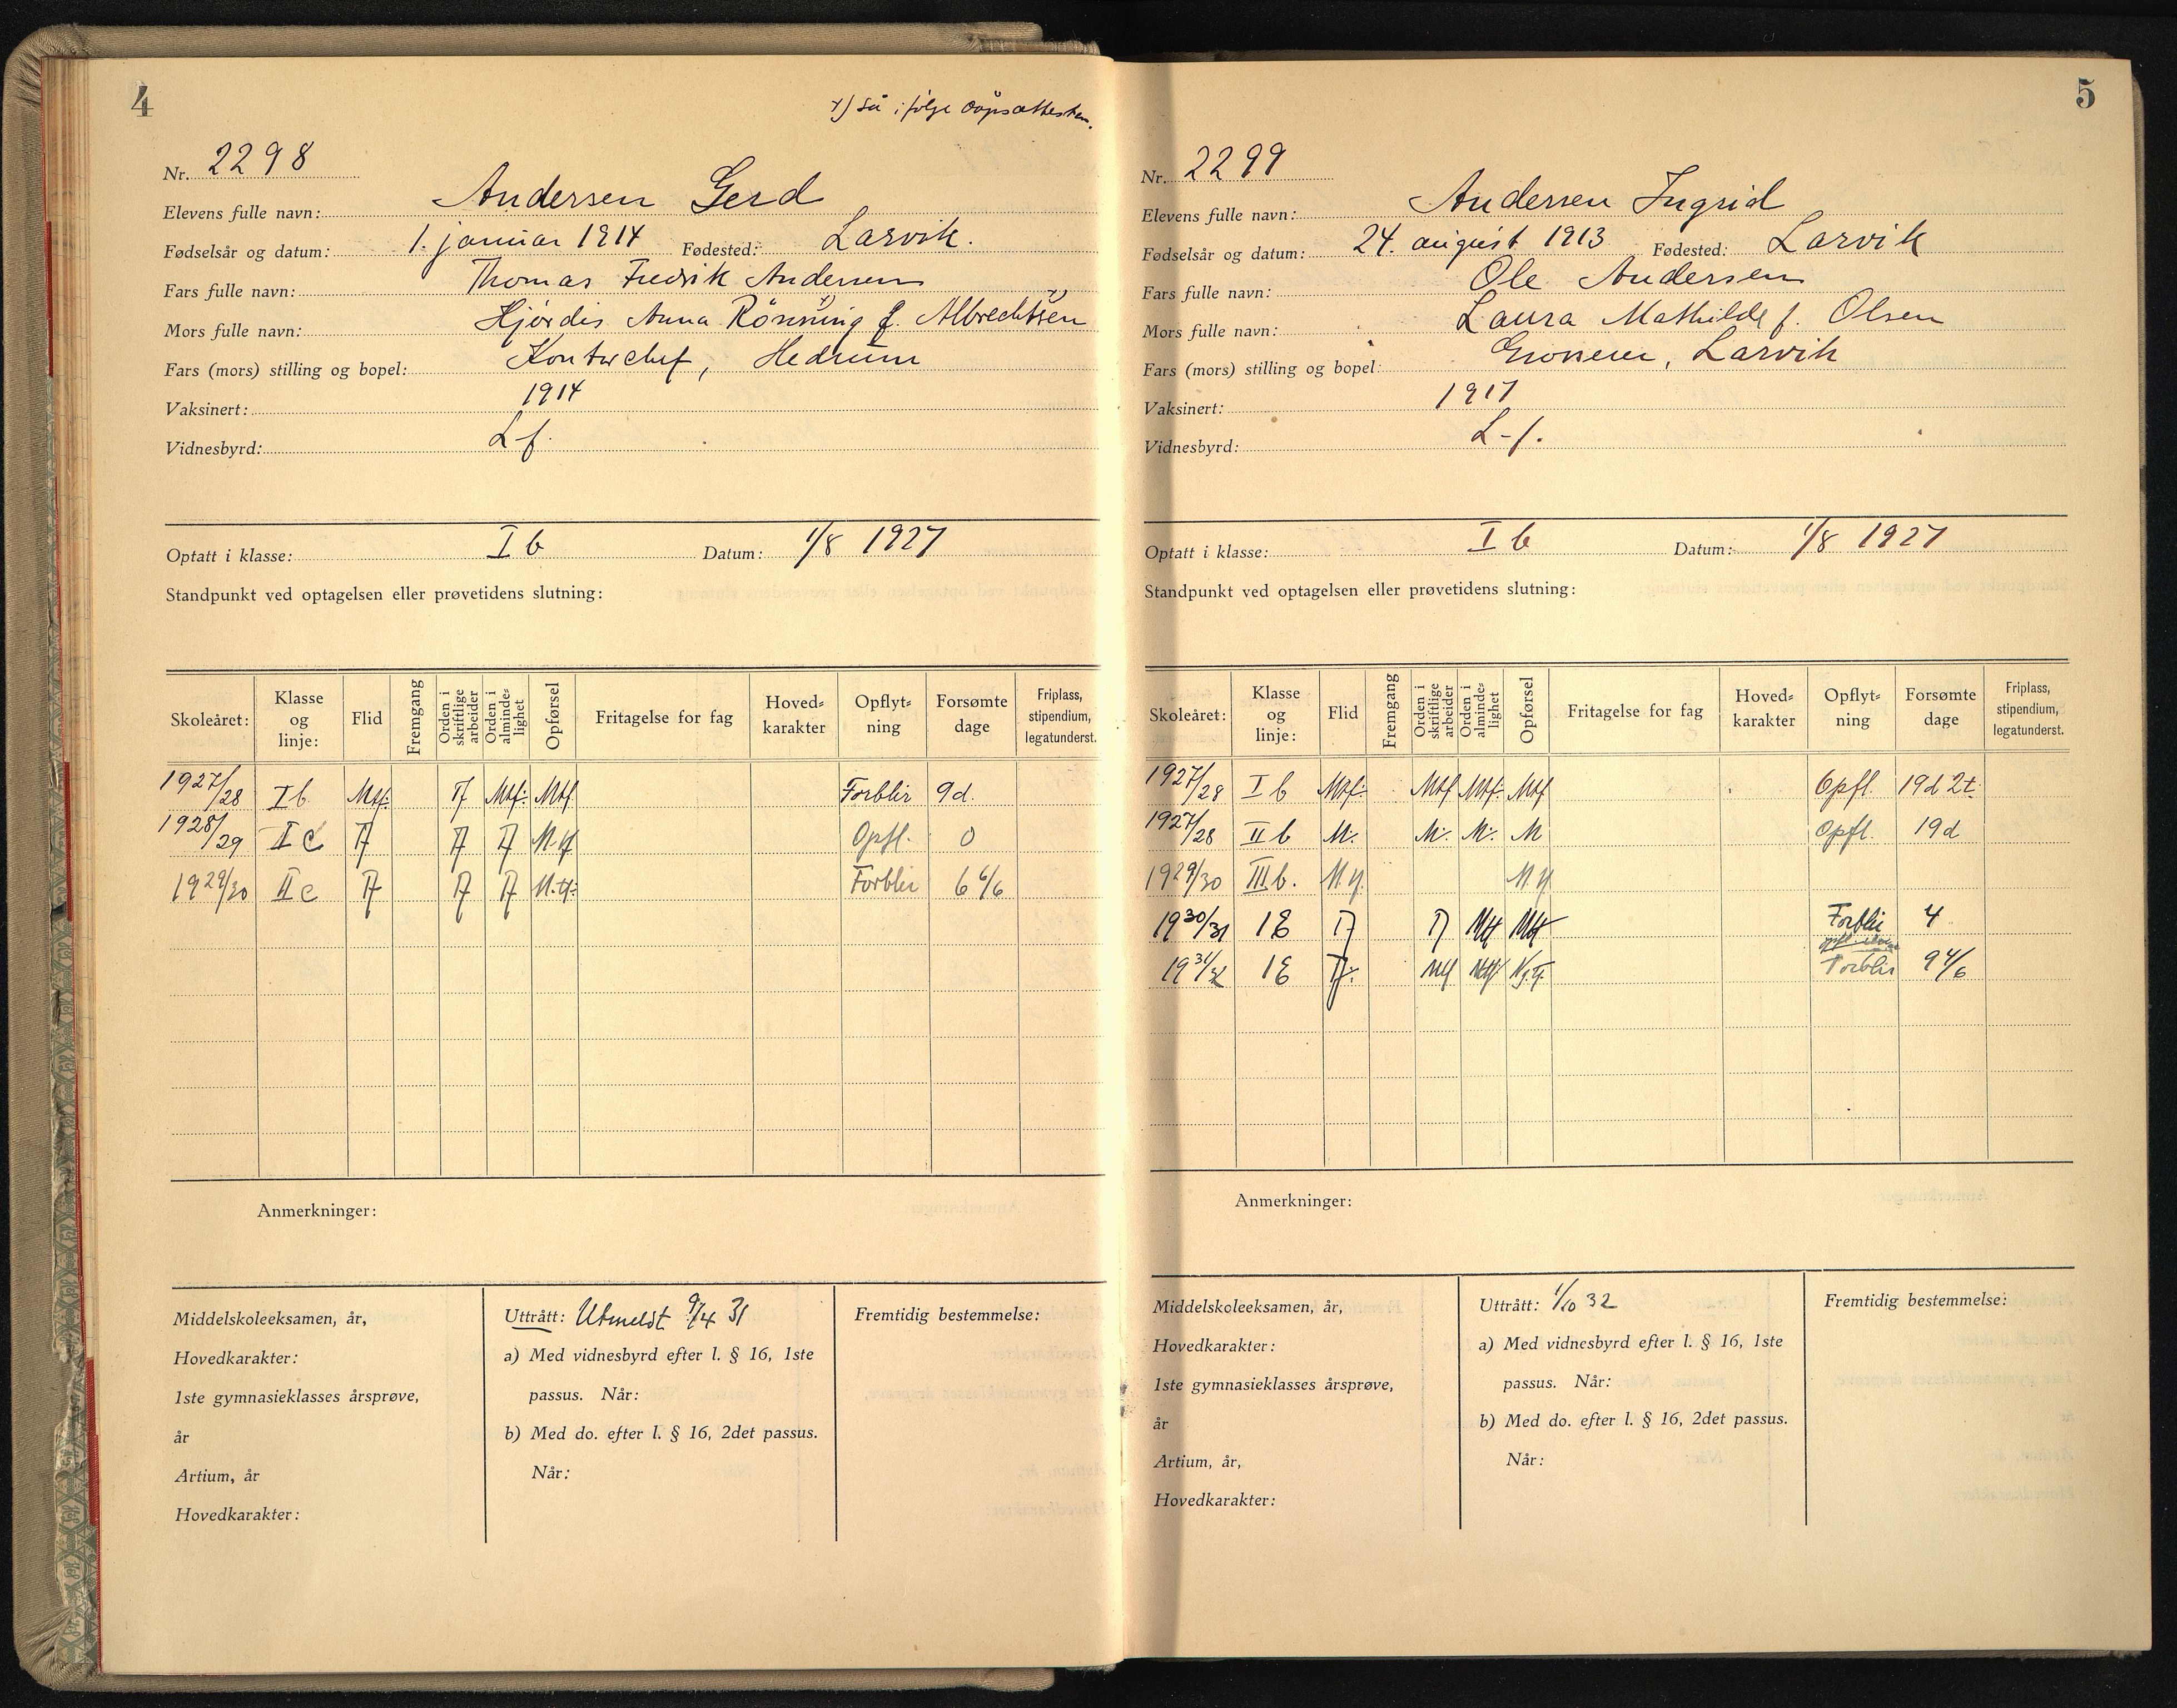 4
x) Så ifølge dåpsattesten.
Nr. 2298
Elevens fulle navn: Andersen Gerd
Fødselsår og datum: 1. januar 1914 Fødested: Larvik.
Fars fulle navn: Thomas Fredrik Andersen
Mors fulle navn: Hjørdis Anna Rönning f. Albrechtsen
Fars (mors) stilling og bopel: Kontorchef, Hedrum
Vaksinert: 1914
Vidnesbyrd: L-f.
Optatt i klasse: I b Datum: 1/8 1927
Standpunkt ved optagelsen eller prøvetidens slutning:
Skoleåret: Klasse og linje: Flid Fremgang Orden i skriftlige arbeider Orden i almindelighet Opførsel Fritagelse for fag Hovedkarakter Opflytning Forsømte dage Friplass, stipendium, legatunderst.
1927/28 I b Mtf. Tf Mtf. Mtf. Forblir 9 d.
1928/29 I c Tf Tf Tf M.tf Opfl. 0
1929/30 II c Tf Tf Tf M.tf. Forblir 6 6/6
Anmerkninger:
Middelskoleeksamen, år,
Hovedkarakter:
1ste gymnasieklasses årsprøve,
år
Artium, år
Hovedkarakter:
Uttrått: Utmeldt 9/4 31
a) Med vidnesbyrd efter l. § 16, 1ste
passus. Når:
b) Med do. efter l. § 16, 2det passus.
Når:
Fremtidig bestemmelse:
5
Nr. 2299
Elevens fulle navn: Andersen Ingrid
Fødselsår og datum: 24. august 1913 Fødested: Larvik
Fars fulle navn: Ole Andersen
Mors fulle navn: Laura Mathilde f. Olsen
Fars (mors) stilling og bopel: Grosserer, Larvik
Vaksinert: 1917
Vidnesbyrd: L-f.
Optatt i klasse: I b Datum: 1/8 1927
Standpunkt ved optagelsen eller prøvetidens slutning:
Skoleåret: Klasse og linje: Flid Fremgang Orden i skriftlige arbeider Orden i almindelighet Opførsel Fritagelse for fag Hovedkarakter Opflytning Forsømte dage Friplass, stipendium, legatunderst.
1927/28 I b Mtf. Mtf Mtf. Mtf Opfl. 19d 2t.
1927/28 II b M. M. M. M Opfl. 19d
1929/30 III b. M.tf. M.tf
1930/31 1E Tf Tf Mtf Mtf Forblir 4
1931/32 1E Tf. Mtf Mtf Forblir 9 4/6
Anmerkninger:
Middelskoleeksamen, år,
Hovedkarakter:
1ste gymnasieklasses årsprøve,
år
Artium, år,
Hovedkarakter:
Uttrått: 1/10 32
a) Med vidnesbyrd efter l. § 16, 1ste
passus. Når:
b) Med do. efter l. § 16, 2det passus.
Når:
Fremtidig bestemmelse: